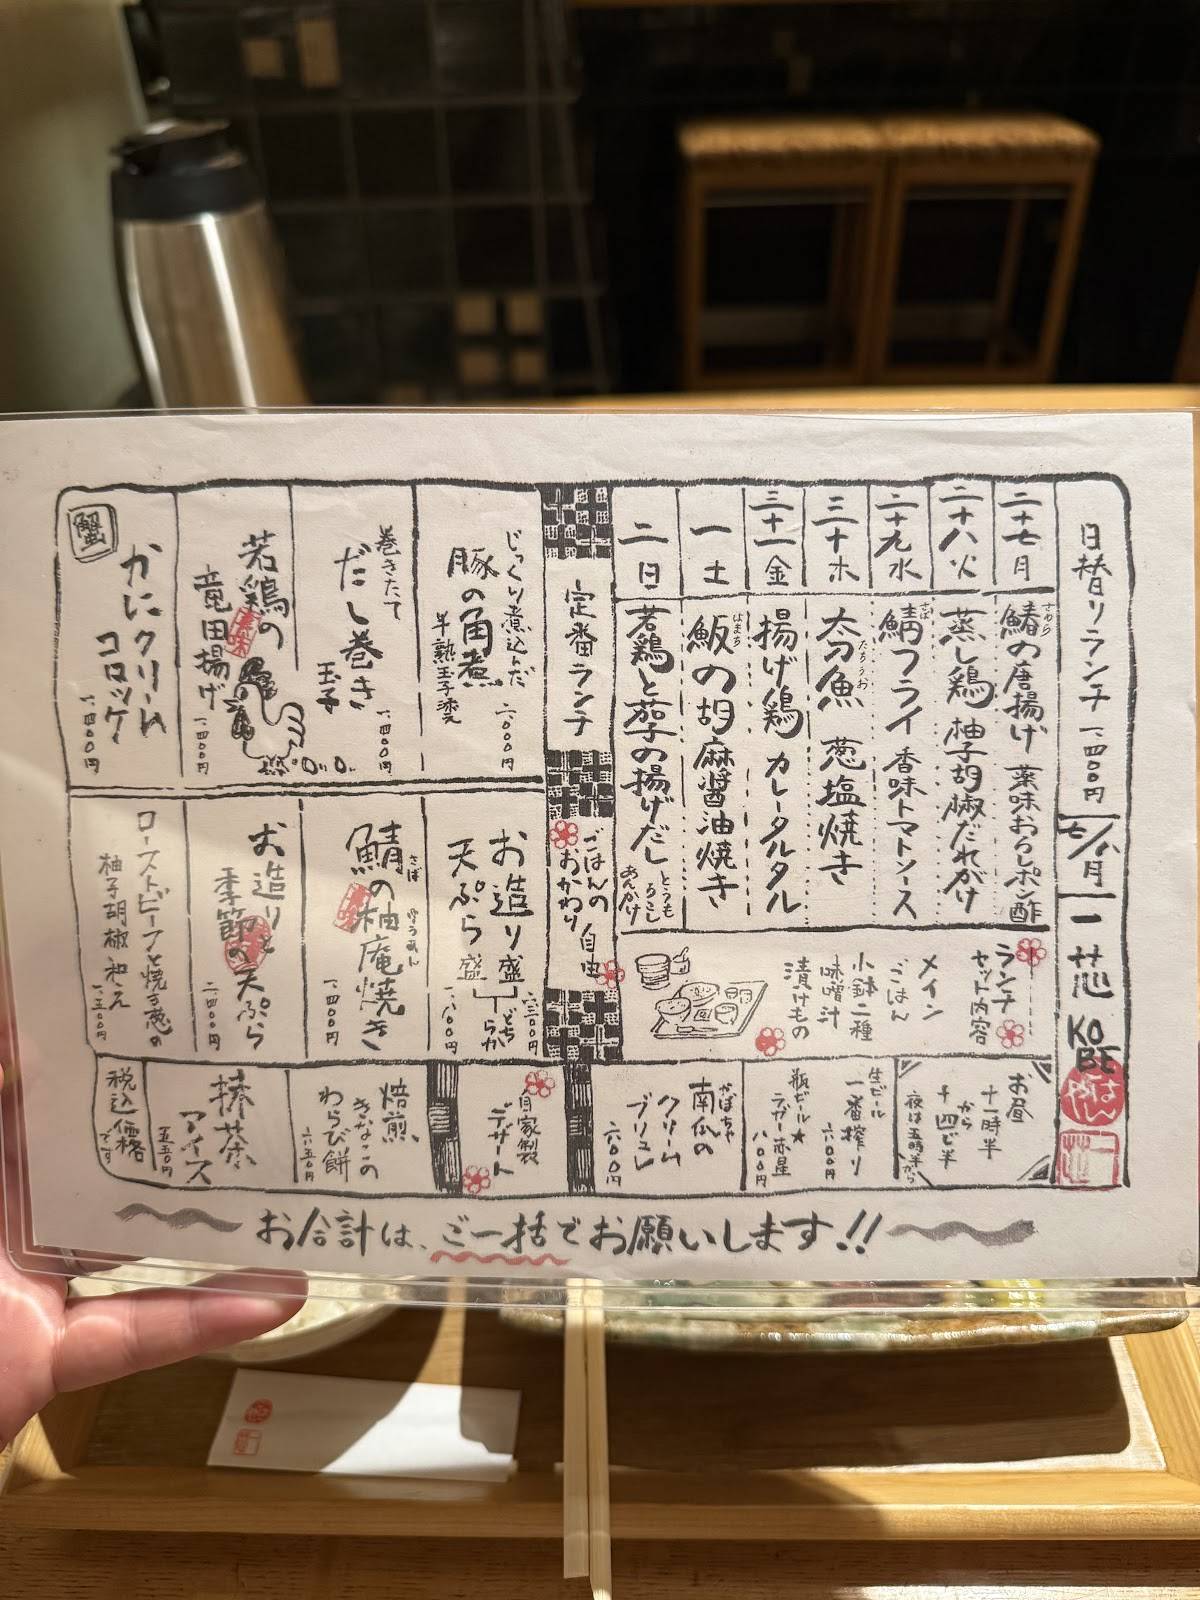 日替りランチ 一、四〇〇円
七/八月
一芯 KOBE
はなれ
二十七 月
鰆の唐揚げ 薬味おろしポン酢
さわら
二十八 火
蒸し鶏 柚子胡椒だれがけ
二十九 水
鯖フライ 香味トマトソース
さば
三十 木
太刀魚 葱塩焼き
たちうお
三十一 金
揚げ鶏 カレータルタル
一 土
鰤の胡麻醤油焼き
はまち
二 日
若鶏と茄子の揚げだし
とうもろこし
あんかけ
ランチ
セット内容
メイン
ごはん
小鉢二種
味噌汁
漬けもの
定番ランチ
ごはんの
おかわり
自由
じっくり煮込んだ
豚の角煮
半熟玉子添え
二、〇〇〇円
巻きたて
だし巻き
玉子
一、四〇〇円
若鶏の
竜田揚げ
一、四〇〇円
蟹
かにクリーム
コロッケ
一、四〇〇円
お造り盛
二、三〇〇円
天ぷら盛
一、八〇〇円
どちらか
鯖の柚庵焼き
さば
ゆうあん
一、四〇〇円
お造りと
季節の天ぷら
二、四〇〇円
ローストビーフと焼き葱の
柚子胡椒和え
一、五〇〇円
お昼
十一時半
から
十四じ半
夜は五時半から
生ビール
一番搾り
六〇〇円
瓶ビール★
ラガー赤星
八〇〇円
南瓜の
かぼちゃ
クリーム
ブリュレ
六〇〇円
自家製
デザート
焙煎
きなこの
わらび餅
六五〇円
棒茶
アイス
五五〇円
税込価格
です
お会計は、ご一括でお願いします!!